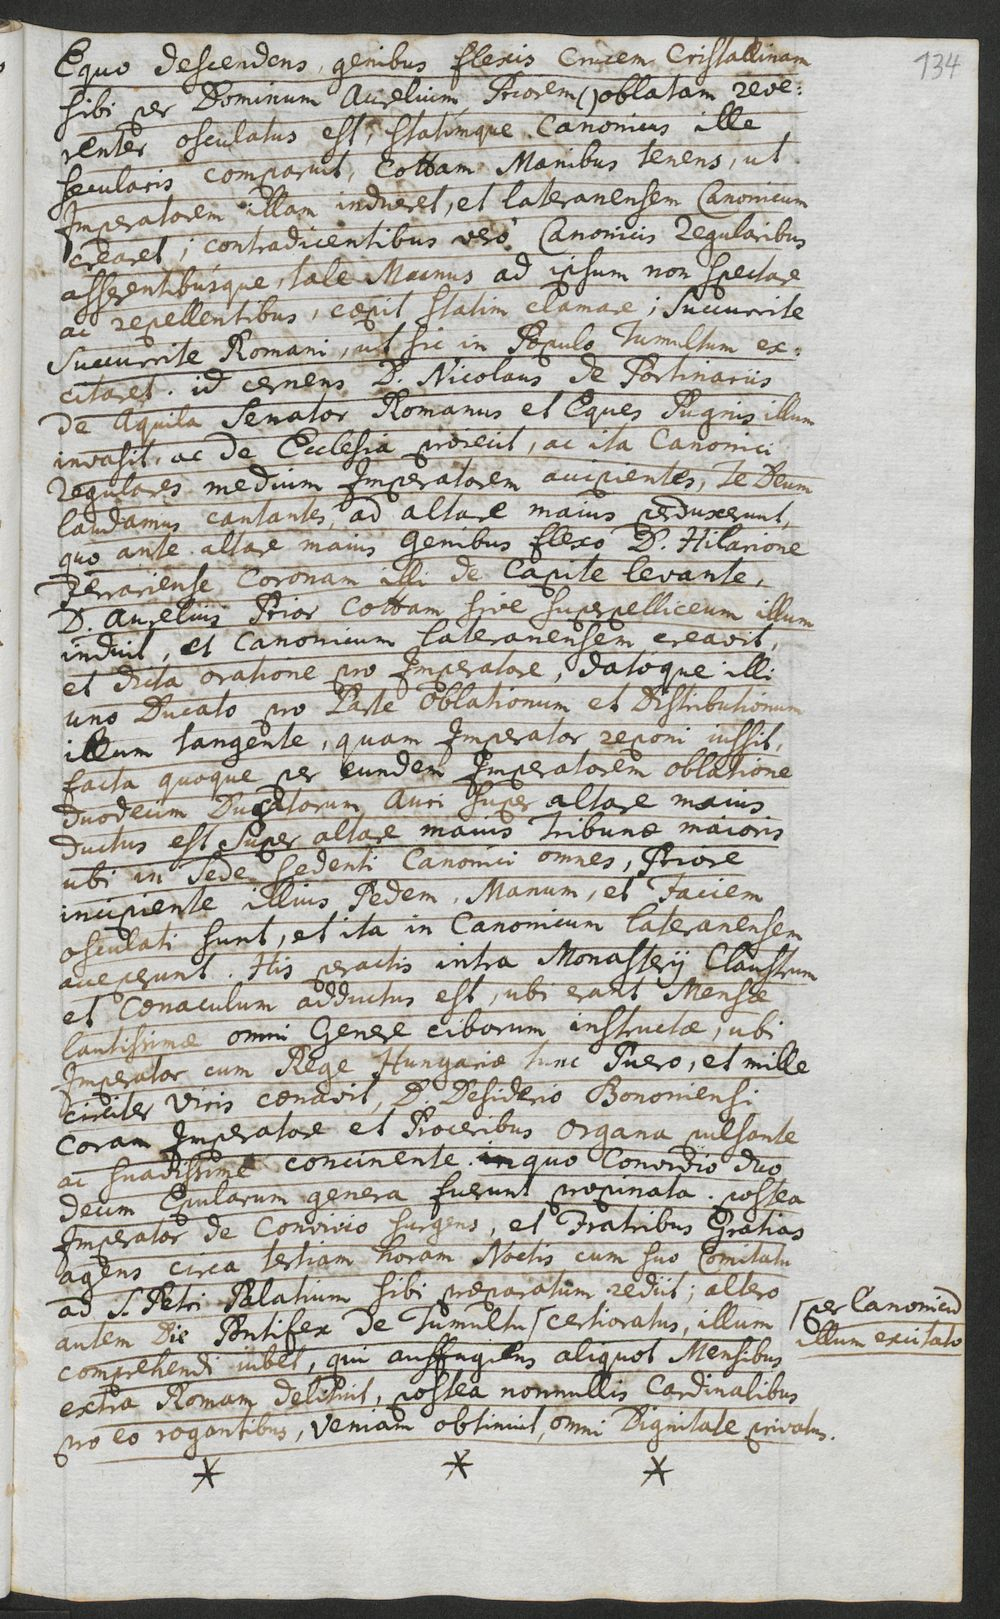 134
Equo descendens, genibus flexis Crucem Cristallinam
sibi per Dominum Aurelium, Priorem () oblatam reve:
renter osculatus est, statimque Canonicus ille
secularis comparuit, Cottam Manibus tenens, ut
Imperatorem illam indueret, et lateranensem Canonicum
crearet; contradicentibus verò Canonicis Regularibus
asserentibusque, tale Munus ad ipsum non spectare
ac repellentibus, cœpit statim clamare; Succurrite
Succurrite Romani, ut sic in Populo Tumultum ex:
citaret. id cernens D. Nicolaus de Portinariis
de Aquila Senator Romanus et Eques Pugnis illum
invasit, ac de Ecclesia proiecit, ac ita Canonici
regulares medium Imperatorem accipientes, Te Deum
laudamus cantantes, ad altare maius perduxerunt,
quo ante altare maius Genibus flexo D. Hilarione
Ferrariense Coronam illi de Capite levante,
D. Aurelius Prior Cottam sive superpelliceum illum
induit, et Canonicum lateranensem creavit,
et dicta oratione pro Imperatore, datoque illi
uno Ducato pro Parte Oblationum et Distributionum
illum tangente, quam Imperator reponi iussit,
facta quoque per eundem Imperatorem oblatione
duodecim Ducatorum Auri super altare maius
ductus est super altare maius Tribunæ maioris
ubi in Sede sedenti Canonici omnes, Priore
incipiente illius Pedem, Manum, et Faciem
osculati sunt, et ita in Canonicum lateranensem
acceperunt. His peractis intra Monasterij Claustrum
et Cœnaculum adductus est, ubi erant Mensæ
lautissimæ omni Genere ciborum instructæ, ubi
Imperator cum Rege Hungariæ tunc Puero, et mille
circiter Viris cœnavit, D. Desiderio Bononiensi
Coram Imperatore et Proceribus organa pulsante
ac suavissimè concinente. in quo Convivio duo
decim Epularum genera fuerunt propinata. postea
Imperator de Convivio surgens, et Fratribus Gratias
agens circa tertiam horam Noctis cum suo Comitatu
ad S. Petri Palatium sibi præparatum rediit; altero
autem Die Pontifex de Tumultu ⌈certioratus, illum
⌈per Canonicū
illum excitato
comprehendi iubet, qui auffugiens aliquot Mensibus
extra Romam delituit, postea nonnullis Cardinalibus
pro eo rogantibus, Veniam obtinuit, omni Dignitate privatus.
* * *